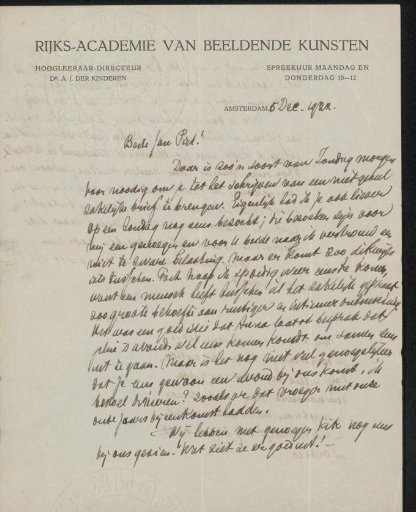 RIJKS-ACADEMIE VAN BEELDENDE KUNSTEN
HOOGLEERAAR-DIRECTEUR
Dr. A. J. DER KINDEREN
SPREEKUUR MAANDAG EN
DONDERDAG 10–12
AMSTERDAM, 5 Dec. 1922
Beste Jan Piet!
Daar is zoo'n soort van Zondag morgen
voor noodig om je tot het schrijven van een niet geheel
zakelijke brief te brengen. Eigenlijk had ik je ook liever
op een Zondag nog eens bezocht; die bezoeken zijn voor
mij een genoegen en voor U beide naar ik vertrouw en
niet te zware belasting. Maar er komt zoo dikwijls
iets tusschen. Toch hoop ik spoedig weer eens te komen
want een mensch heeft tusschen al het zakelijke
zoo groote behoefte aan rustiger en intiemer
Het was een goed idee dat Anna laatst dat
jelui 's avonds wel eens komen kondt om samen
uit te gaan. Maar is het nog niet veel genoegelijker
dat je eens gewoon een avond bij ons komt
zooals we dat vroeger met onze
bijeenkomst hadden.
Wij hebben met genoegen nog eens
bij ons gezien. Wat ziet ze er goed uit!